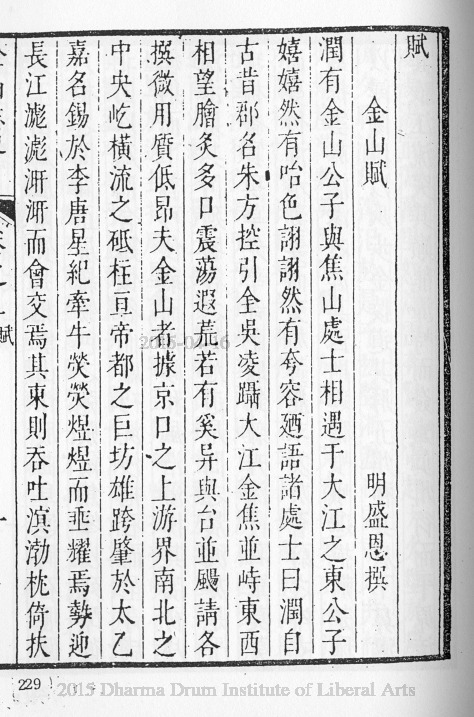 賦
金山賦
明盛恩撰
潤有金山公子與焦山處士相遇于大江之東公子
嬉嬉然有咍色詡詡然有夸容廼語諸處士曰潤自
古昔郡名朱方控引全吳凌躡大江金焦並峙東西
相望膾炙多口震蕩遐荒若有奚异與台並颺請各
撰微用質低昂夫金山者據京口之上游界南北之
中央屹橫流之砥柱亘帝都之巨坊雄跨肇於太乙
嘉名錫於李唐星紀牽牛熒熒煜煜而垂耀焉勢迎
長江滮滮湝湝而會交焉其東則吞吐溟渤枕倚扶
賦
229
2015 Dharma Drum Institute of Liberal Arts